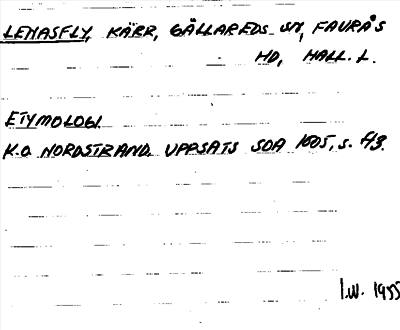 LEMASFLY, KÄRR, GÄLLAREDS SN, FAURÅS
HD, HALL. L.
ETYMOLOGI.
K.O NORDSTRAND. UPPSATS SOA 1605, s. 43.
I.W. 1955